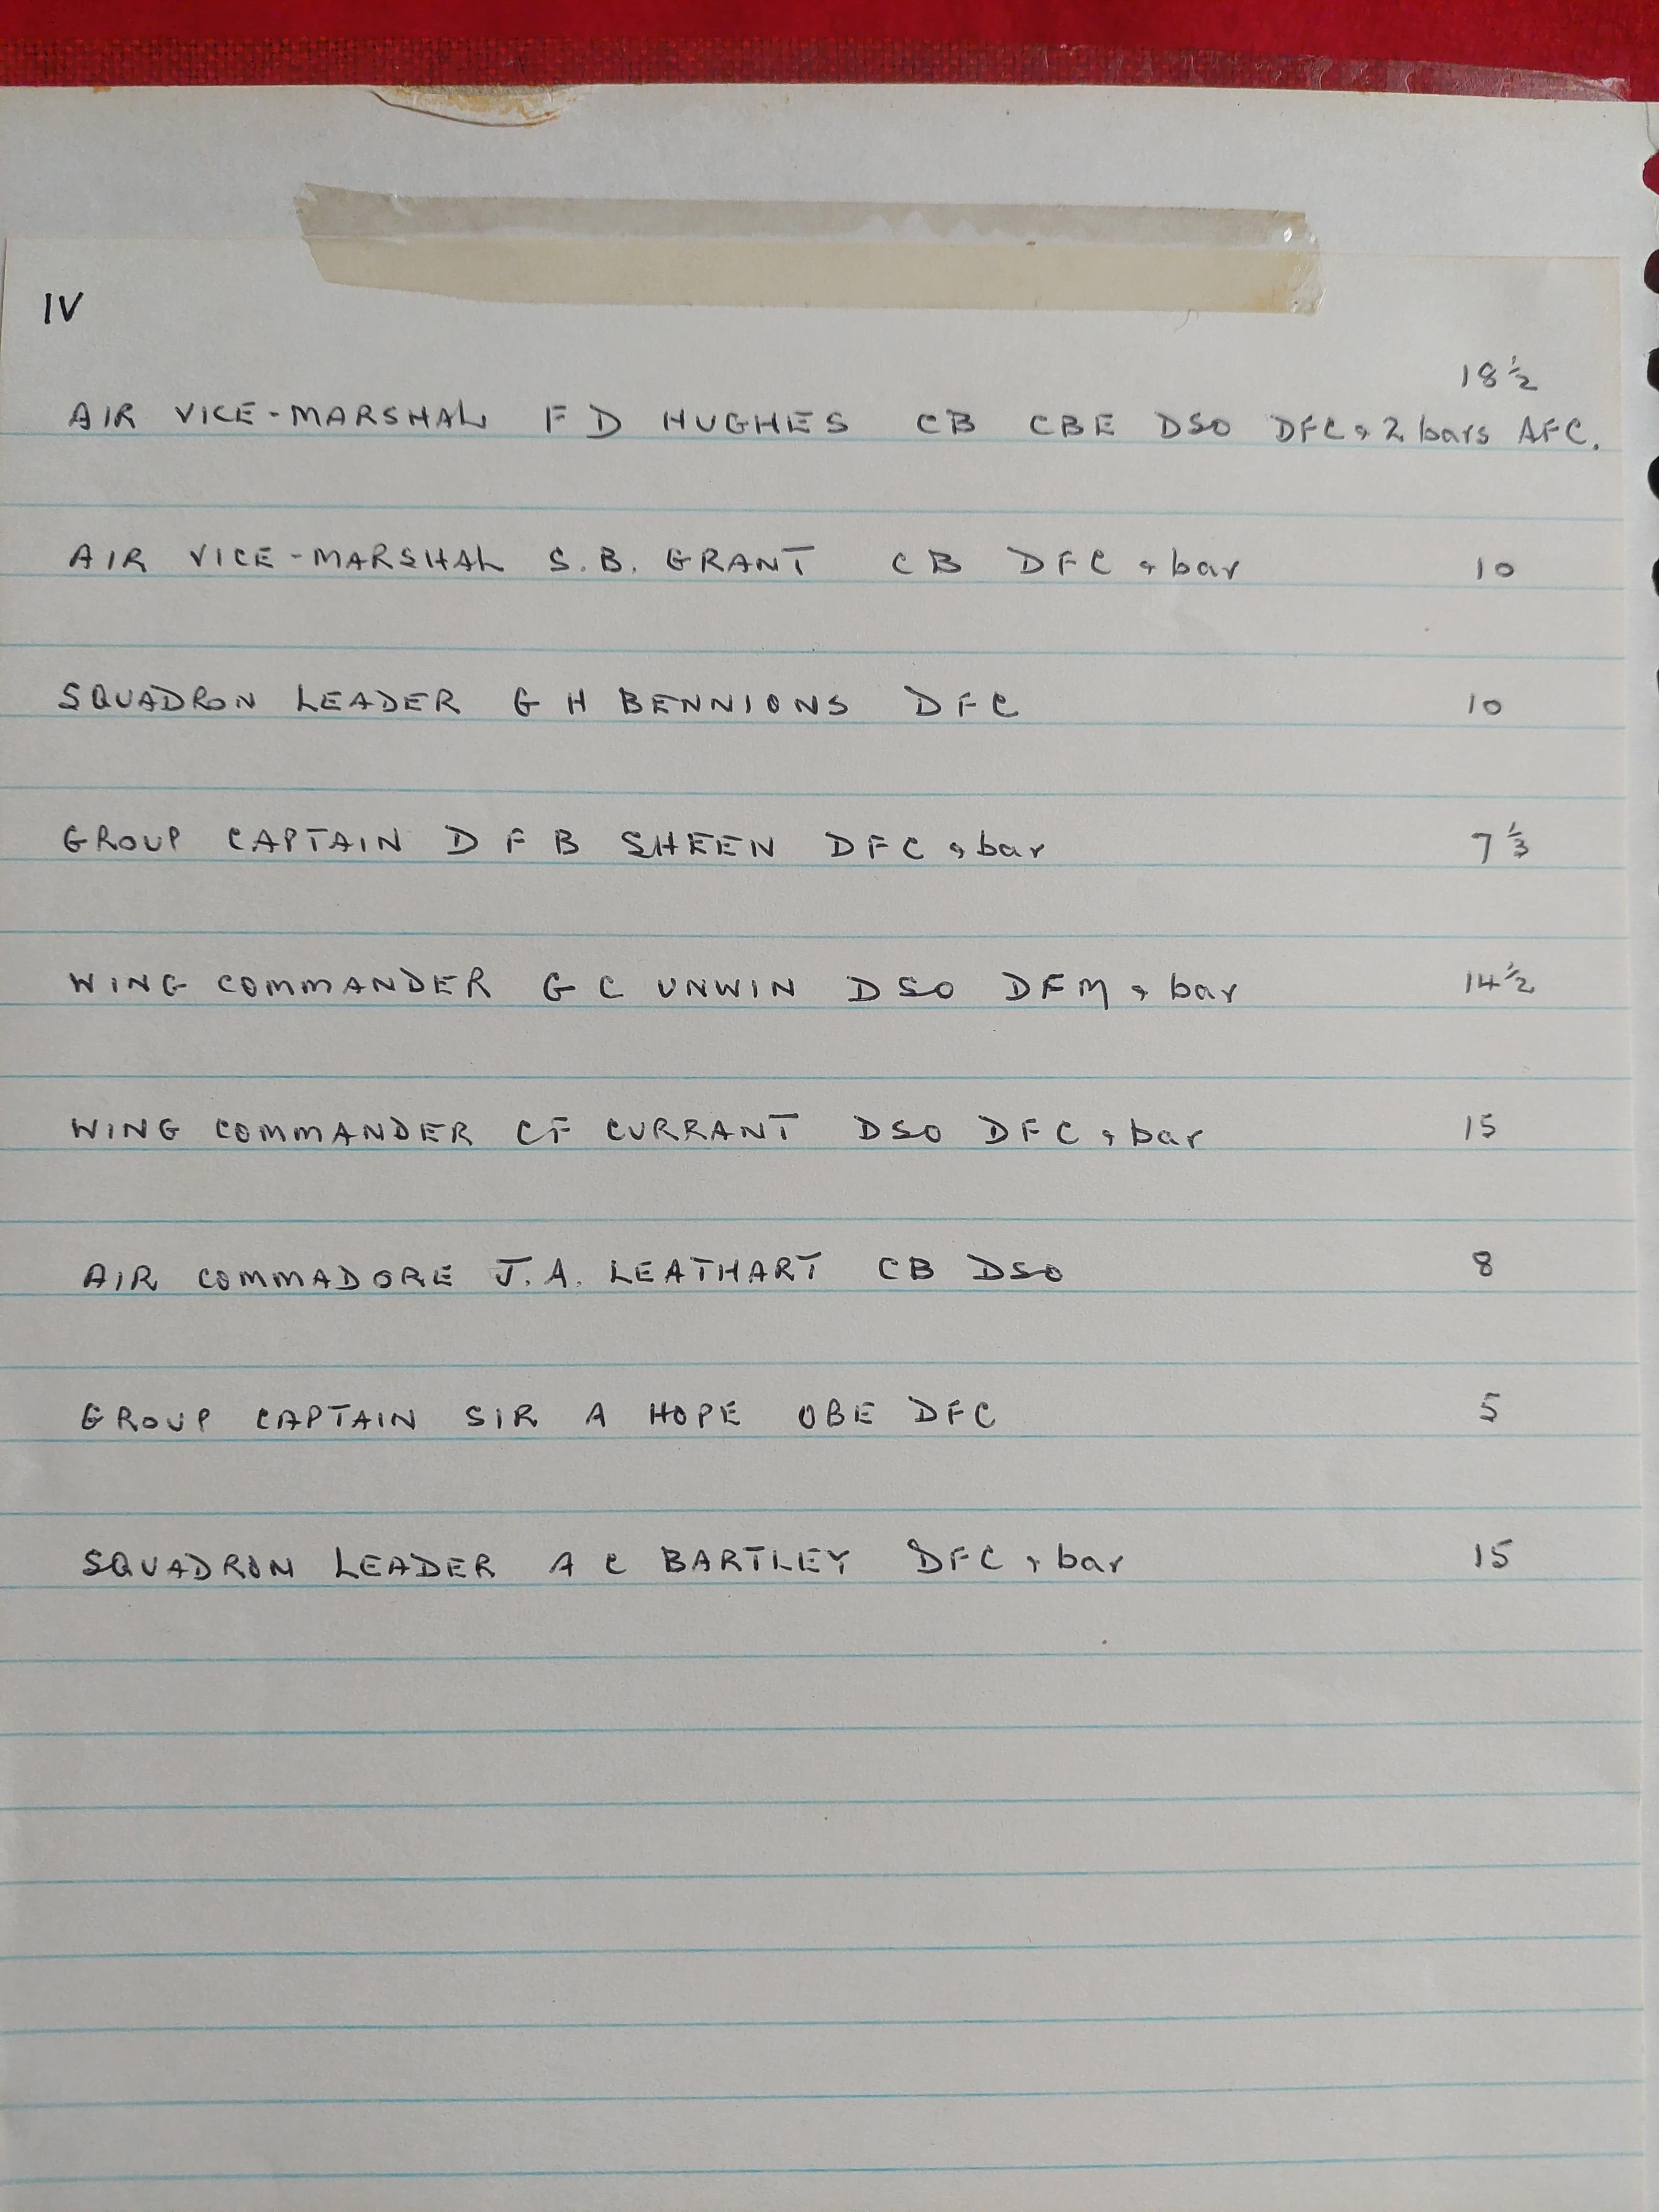 IV
18½
AIR VICE-MARSHAL F D HUGHES CB CBE DSO DFC & 2 bars AFC.
AIR VICE-MARSHAL S.B. GRANT CB DFC & bar 10
SQUADRON LEADER G H BENNIONS DFC 10
GROUP CAPTAIN D F B SHEEN DFC & bar 7⅓
WING COMMANDER G C UNWIN DSO DFM & bar 14½
WING COMMANDER CF CURRANT DSO DFC & bar 15
AIR COMMADORE J.A. LEATHART CB DSO 8
GROUP CAPTAIN SIR A HOPE OBE DFC 5
SQUADRON LEADER A C BARTLEY DFC & bar 15